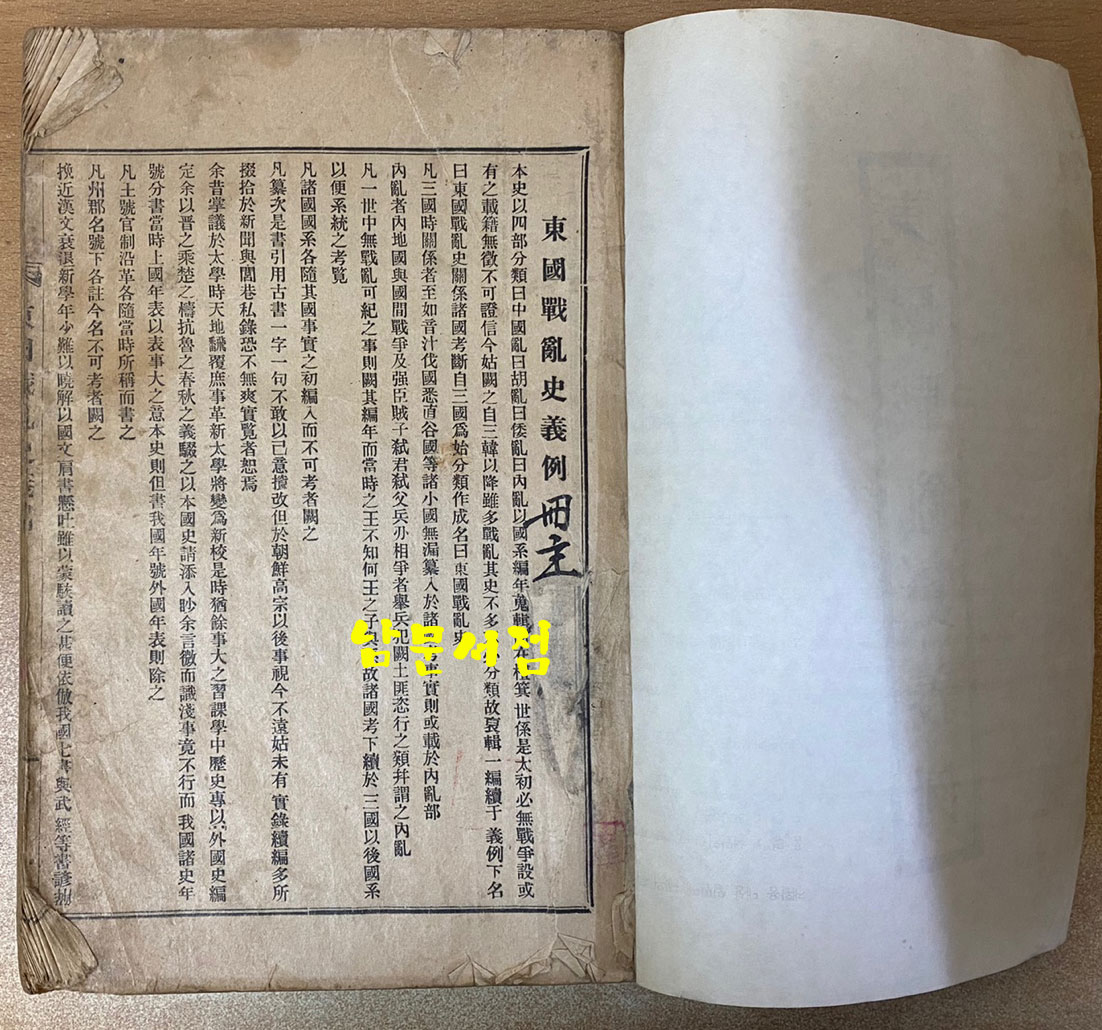 東國戰亂史義例
冊主
本史以四部分類曰中國亂曰胡亂曰倭亂曰內亂以國系編年蒐輯 世係是太初必無戰爭設或
有之載籍無徵不可證信今姑闕之自三韓以降雖多戰亂其史不多 分類故裒輯一編續于 義例下名
曰東國戰亂史關係諸國考斷自三國爲始分類作成名曰東國戰亂史
凡三國時關係者至如音汁伐國悉直谷國等諸小國無漏纂入於諸 事實則或載於內亂部
內亂者內地國與國間戰爭及强臣賊子弑君弑父兵刅相爭者舉兵犯闕土匪恣行之類幷謂之內亂
凡一世中無戰亂可紀之事則闕其編年而當時之王不知何王之子 故諸國考下續於 三國以後國系
以便系統之考覧
凡諸國國系各隨其國事實之初編入而不可考者闕之
凡纂次是書引用古書一字一句不敢以己意擅改但於朝鮮高宗以後事視今不遠姑未有 實錄續編多所
掇拾於新聞與閭巷私錄恐不無爽實覧者恕焉
余昔掌議於太學時天地飜覆庶事革新太學將變爲新校是時猶餘事大之習課學中歷史專以外國史編
定余以晋之乘楚之檮杌魯之春秋之義騣之以本國史請添入眇余言微而識淺事竟不行而 我國諸史年
號分書當時上國年表以表事大之意本史則但書我國年號外國年表則除之
凡土號官制沿革各隨當時所稱而書之
凡州郡名號下各註今名不可考者闕之
挽近漢文衰退新學年少難以曉解以國文肩書懸吐雖以蒙騃讀之甚便依倣我國七書與武 經等書諺
암문서점